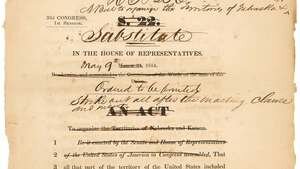 A Bill to organize the Territory of Nebraska &
33d CONGRESS,
1st Session.
S. 22.
Substitute
IN THE HOUSE OF REPRESENTATIVES.
May 9th 1854.
Ordered to be printed
Strike out all after the enacting clause
AN ACT
To organize the Territories of Nebraska and Kansas.
1 Be it enacted by the Senate and House of Representatives
2 of the United States of America in Congress assembled, That
3 all that part of the territory of the United States included